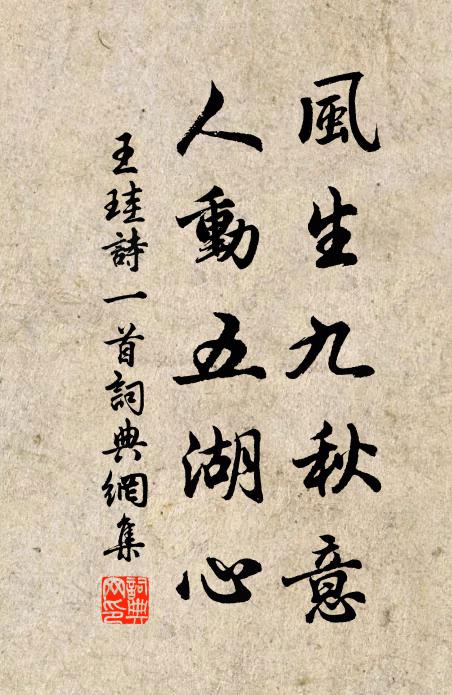 風生九秋意
人動五湖心
王珪詩一首詞典網集
詞典網印